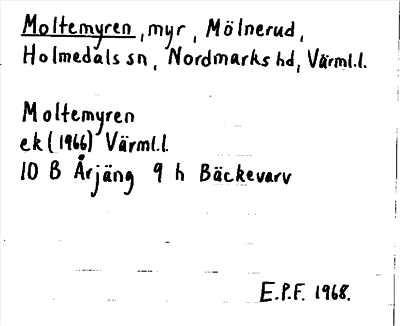 Moltemyren, myr, Mölnerud,
Holmedals sn, Nordmarks hd, Värml.l.
Moltemyren
ek (1966) Värml.l.
10 B Årjäng 9 h Bäckevarv
E.P.F. 1968.